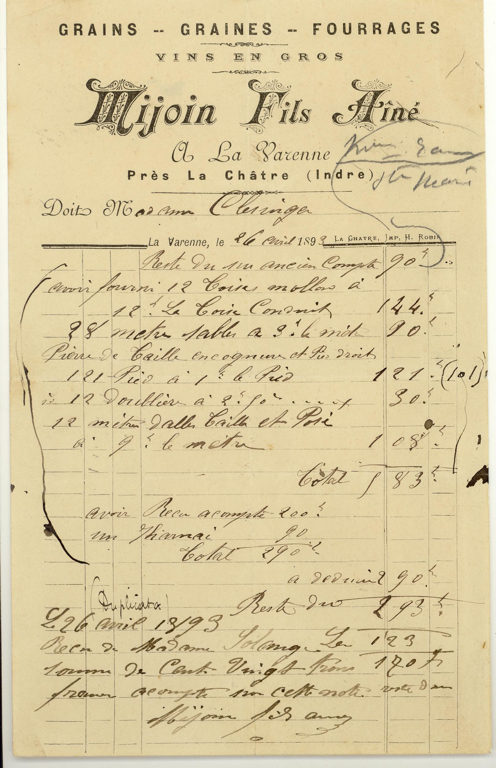 GRAINS -- GRAINES -- FOURRAGES
VINS EN GROS
Mijoin Fils Aîné
A La Varenne
Près La Châtre (Indre)
Doit Madame Clesinger
La Varenne, le 26 avril 1893 LA CHATRE, IMP. H. ROBIN
Reste du sur ancien Compte 90.f
avoir fourni 12 Toises mollon à
12.f La Toise Conduit 144.f
28 metre sables a 3.f le met 90.f
Pierre de Taille encognure et Pies droit
121 Pied à 1.f le Pied 121.f (101)
12 doullier à 2.f 50 30.f
12 métre dalles Taille et Posé
à 9.f le métre 108.f
Total 583.f
avoir Recu acompte 200.f
un 90
Total 290.f
a deduire 290.f
(Duplicata) Reste du 293.f
Le 26 avril 1893
Recu de Madame Solange La 123
somme de Cent Vingt trois 170 f
franc acompte sur cette note. reste du
Mijoin fils ainé